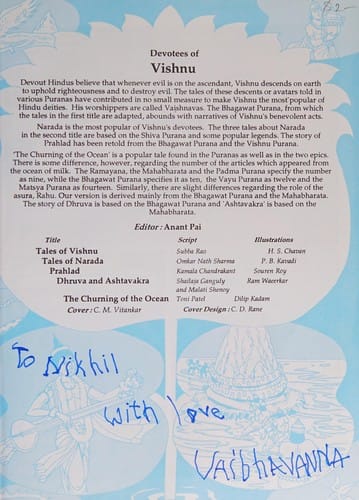 82-
Devotees of
Vishnu
Devout Hindus believe that whenever evil is on the ascendant, Vishnu descends on earth
to uphold righteousness and to destroy evil. The tales of these descents or avatars told in
various Puranas have contributed in no small measure to make Vishnu the most popular of
Hindu deities. His worshippers are called Vaishnavas. The Bhagawat Purana, from which
the tales in the first title are adapted, abounds with narratives of Vishnu's benevolent acts.
Narada is the most popular of Vishnu's devotees. The three tales about Narada
in the second title are based on the Shiva Purana and some popular legends. The story of
Prahlad has been retold from the Bhagawat Purana and the Vishnu Purana.
'The Churning of the Ocean' is a popular tale found in the Puranas as well as in the two epics.
There is some difference, however, regarding the number of the articles which appeared from
the ocean of milk. The Ramayana, the Mahabharata and the Padma Purana specify the number
as nine, while the Bhagawat Purana specifies it as ten, the Vayu Purana as twelve and the
Matsya Purana as fourteen. Similarly, there are slight differences regarding the role of the
asura, Rahu. Our version is derived mainly from the Bhagawat Purana and the Mahabharata.
The story of Dhruva is based on the Bhagawat Purana and 'Ashtavakra' is based on the
Mahabharata.
Editor : Anant Pai
Title Script Illustrations
Tales of Vishnu Subba Rao H. S. Chavan
Tales of Narada Omkar Nath Sharma P. B. Kavadi
Prahlad Kamala Chandrakant Souren Roy
Dhruva and Ashtavakra Shailaja Ganguly Ram Waeerkar
and Malati Shenoy
The Churning of the Ocean Toni Patel Dilip Kadam
Cover : C. M. Vitankar Cover Design : C. D. Rane
To Nikhil
with love
VaibhavANNA